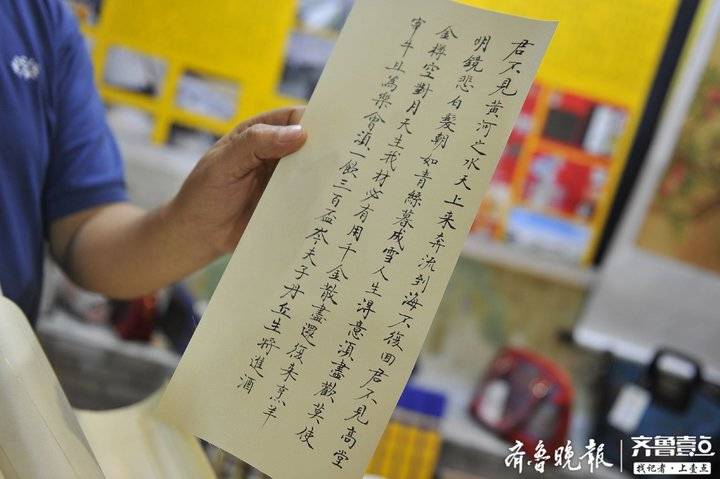 君不見黄河之水天上来奔流到海不復回君不見高堂
明鏡悲白髮朝如青絲暮成雪人生得意湏盡歡莫使
金樽空對月天生我材必有用千金散盡還復来烹羊
宰牛且為樂會湏一飲三百盃岑夫子丹丘生將進酒
齊魯晚報
齐鲁壹点
找记者·上壹点